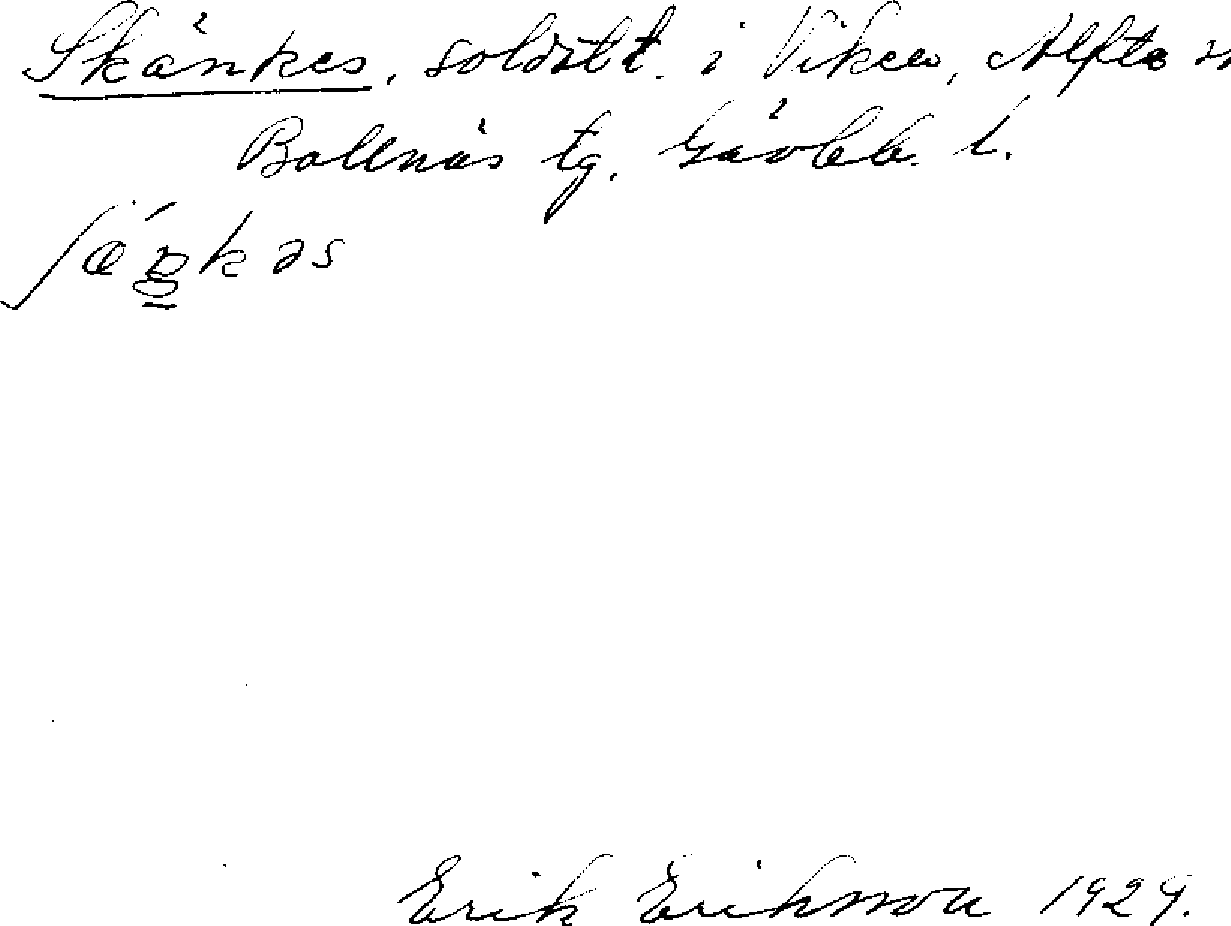 Skänkes, soldatt. i Viken, Alfta s
Bollnäs tg. Gävleb. l.
Erik Erikson 1929.